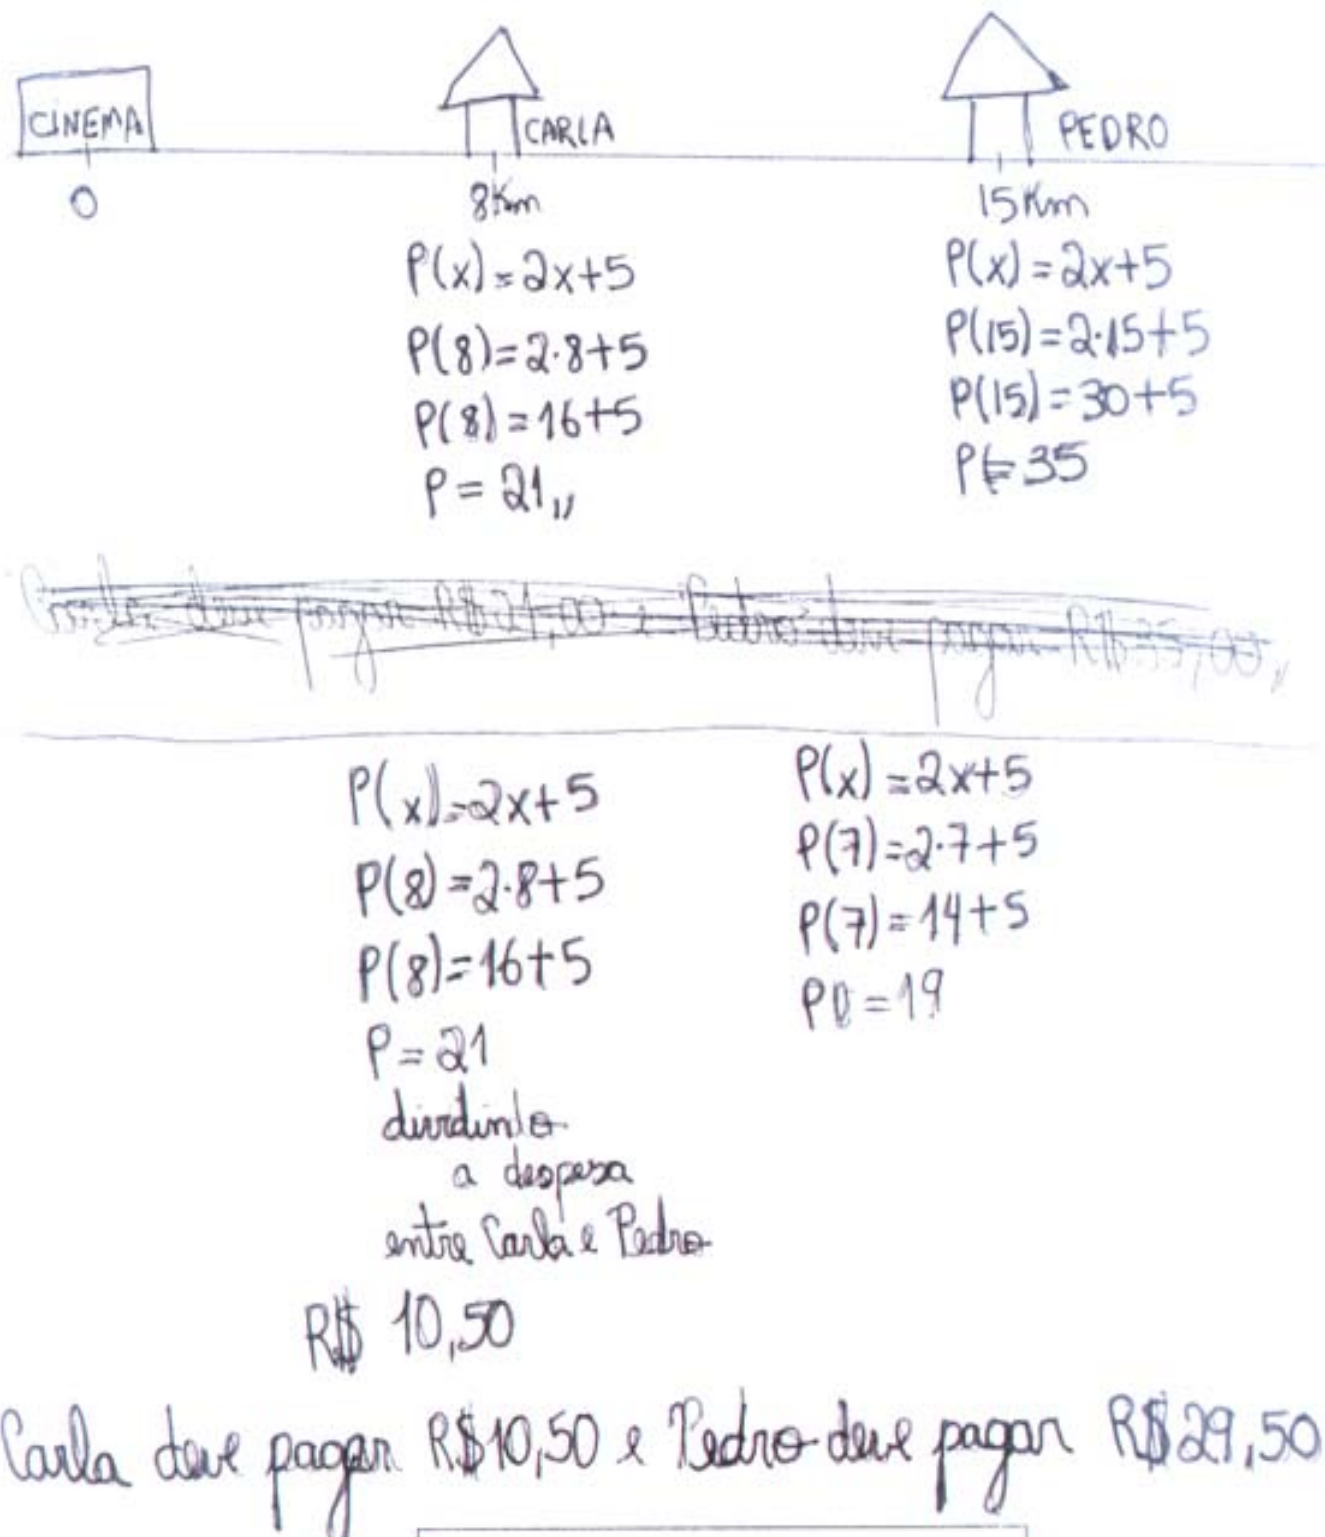 CINEMA
CARLA
PEDRO
0
8Km
15Km
P(x)=2x+5
P(8)=2·8+5
P(8)=16+5
P=21,,
P(x)=2x+5
P(15)=2·15+5
P(15)=30+5
P=35
Carla deve pagar R$21,00 e Pedro deve pagar R$35,00,,
P(x)=2x+5
P(8)=2·8+5
P(8)=16+5
P=21
dividindo
a despesa
entre Carla e Pedro
R$ 10,50
P(x)=2x+5
P(7)=2·7+5
P(7)=14+5
P=19
Carla deve pagar R$10,50 e Pedro deve pagar R$29,50